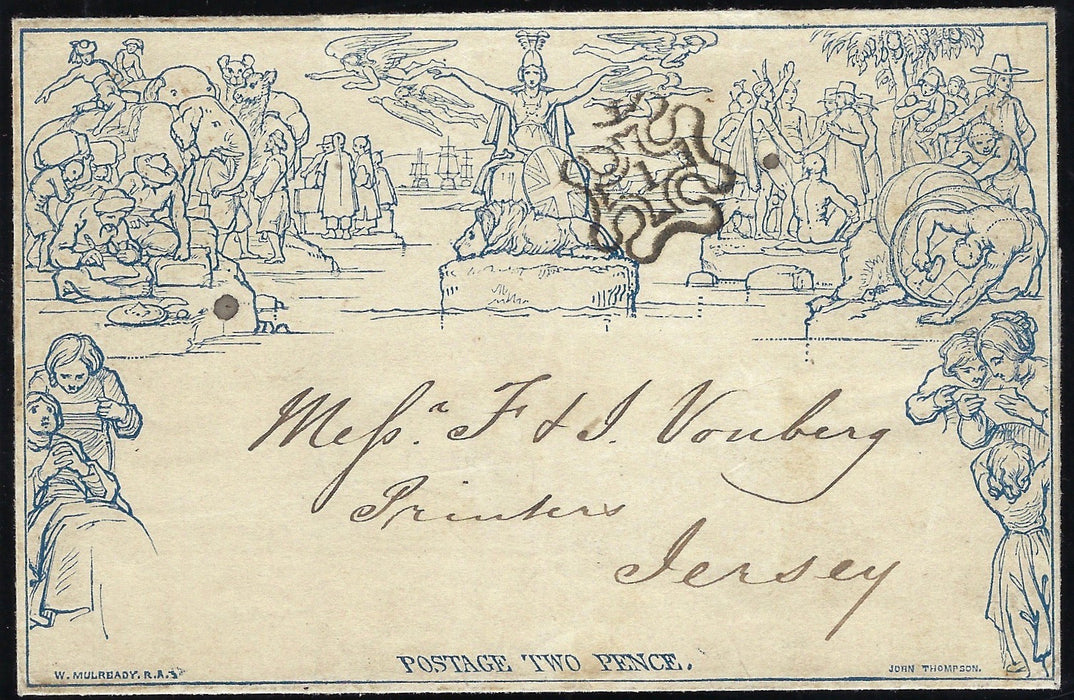 Messrs. F & I. Vonberg
Printers
Jersey
POSTAGE TWO PENCE.
W. MULREADY. R.A.
JOHN THOMPSON.